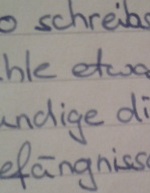 o schreibs
hle etwa
undige di
efängniss